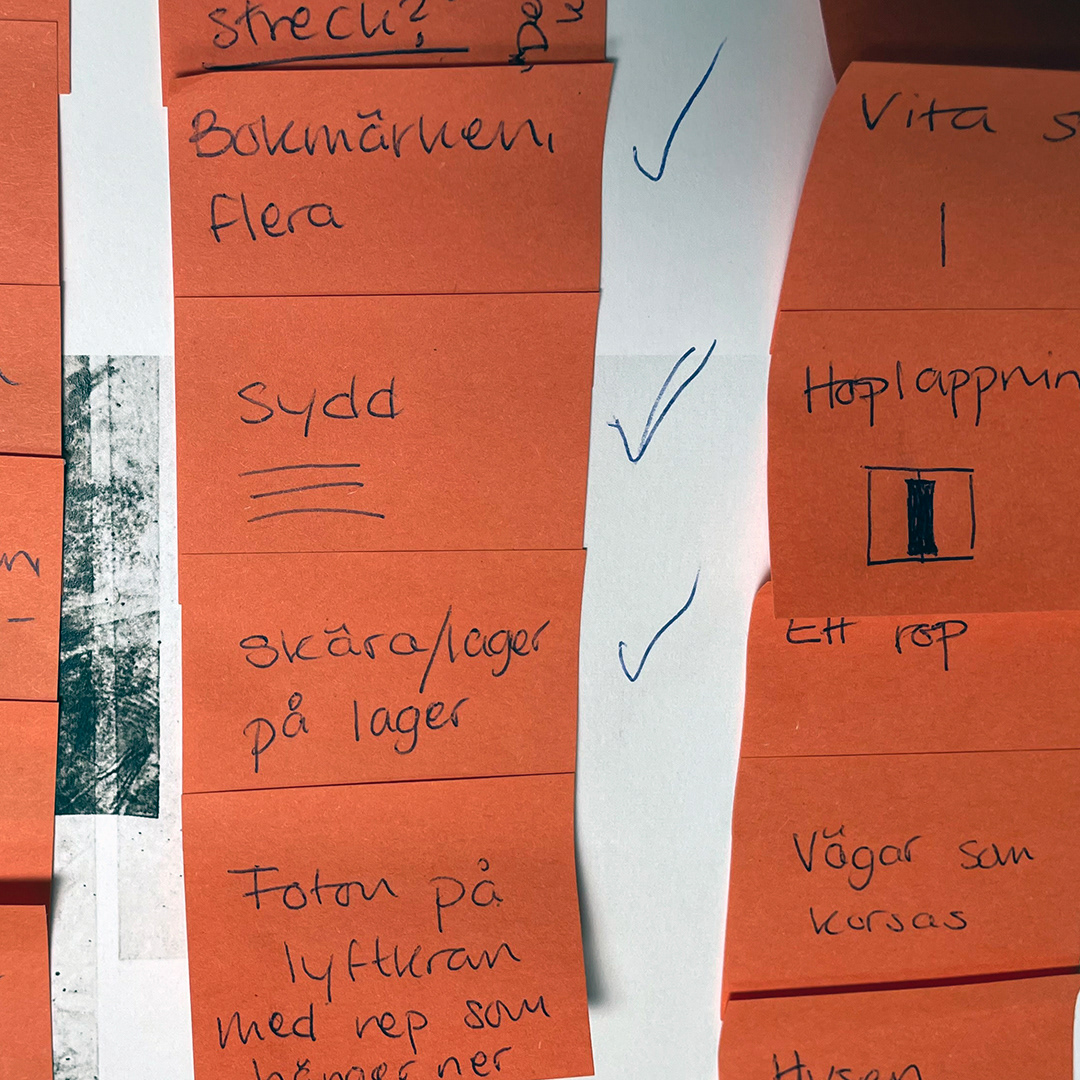 streck?
De
Bokmärken,
flera
Sydd
skära/lager
på lager
Foton på
lyftkran
med rep som
hänger ner
Vita s
Hoplappnin
Ett rop
Vägar som
korsas
Husen